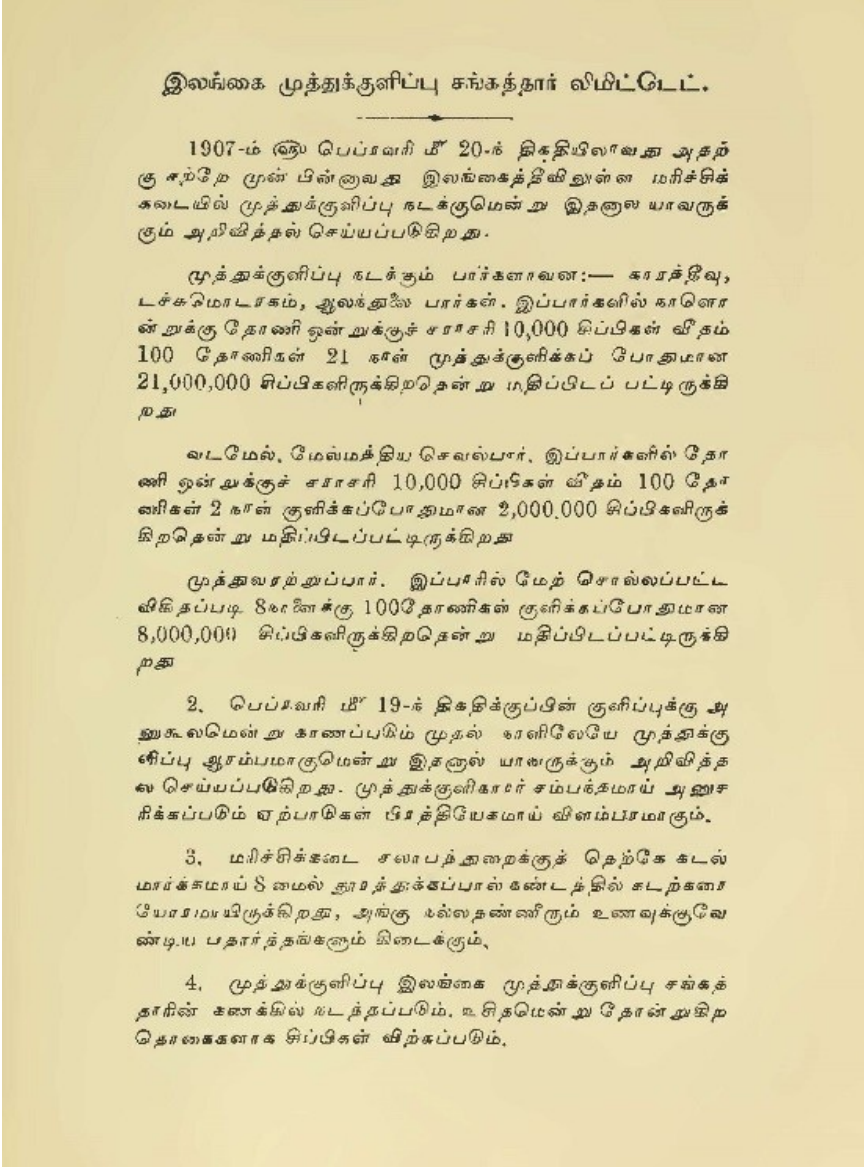 இலங்கை முத்துக்குளிப்பு சங்கத்தார் லிமிட்டெட்.
1907-ம் ௵ பெப்ரவரி மீ 20-ந் திகதியிலாவது அதற்
கு சற்றே முன் பின்னாவது இலங்கைத்தீவிலுள்ள மரிச்சிக்
கடையில் முத்துக்குளிப்பு நடக்குமென்று இதனால் யாவருக்
கும் அறிவித்தல் செய்யப்படுகிறது.
முத்துக்குளிப்பு நடக்கும் பார்களாவன:— காரத்தீவு,
டச்சுமொடரகம், ஆலந்துலை பார்கள். இப்பார்களில் நாளொ
ன்றுக்கு தோணி ஒன்றுக்குச் சராசரி 10,000 சிப்பிகள் வீதம்
100 தோணிகள் 21 நாள் முத்துக்குளிக்கப் போதுமான
21,000,000 சிப்பிகளிருக்கிறதென்று மதிப்பிடப் பட்டிருக்கி
றது
வடமேல், மேல்மத்திய செவல்பார். இப்பார்களில் தோ
ணி ஒன்றுக்குச் சராசரி 10,000 சிப்பிகள் வீதம் 100 தோ
ணிகள் 2 நாள் குளிக்கப்போதுமான 2,000,000 சிப்பிகளிருக்
கிறதென்று மதிப்பிடப்பட்டிருக்கிறது
முத்துவரற்றுப்பார். இப்பாரில் மேற் சொல்லப்பட்ட
விகிதப்படி 8நாளைக்கு 100தோணிகள் குளிக்கப்போதுமான
8,000,000 சிப்பிகளிருக்கிறதென்று மதிப்பிடப்பட்டிருக்கி
றது
2. பெப்ரவரி மீ 19-ந் திகதிக்குப்பின் குளிப்புக்கு அ
னுகூலமென்று காணப்படும் முதல் நாளிலேயே முத்துக்கு
ளிப்பு ஆரம்பமாகுமென்று இதனால் யாவருக்கும் அறிவித்த
ல் செய்யப்படுகிறது. முத்துக்குளிகாரர் சம்பந்தமாய் அனுச
ரிக்கப்படும் ஏற்பாடுகள் பிரத்தியேகமாய் விளம்பரமாகும்.
3. மரிச்சிக்கடை சலாபத்துறைக்குத் தெற்கே கடல்
மார்க்கமாய் 8 மைல் தூரத்துக்கப்பால் கண்டத்தில் கடற்கரை
யோரமாயிருக்கிறது, அங்கு நல்லதண்ணீரும் உணவுக்குவே
ண்டிய பதார்த்தங்களும் கிடைக்கும்.
4. முத்துக்குளிப்பு இலங்கை முத்துக்குளிப்பு சங்கத்
தாரின் கணக்கில் நடத்தப்படும். உசிதமென்று தோன்றுகிற
தொகைகளாக சிப்பிகள் விற்கப்படும்.